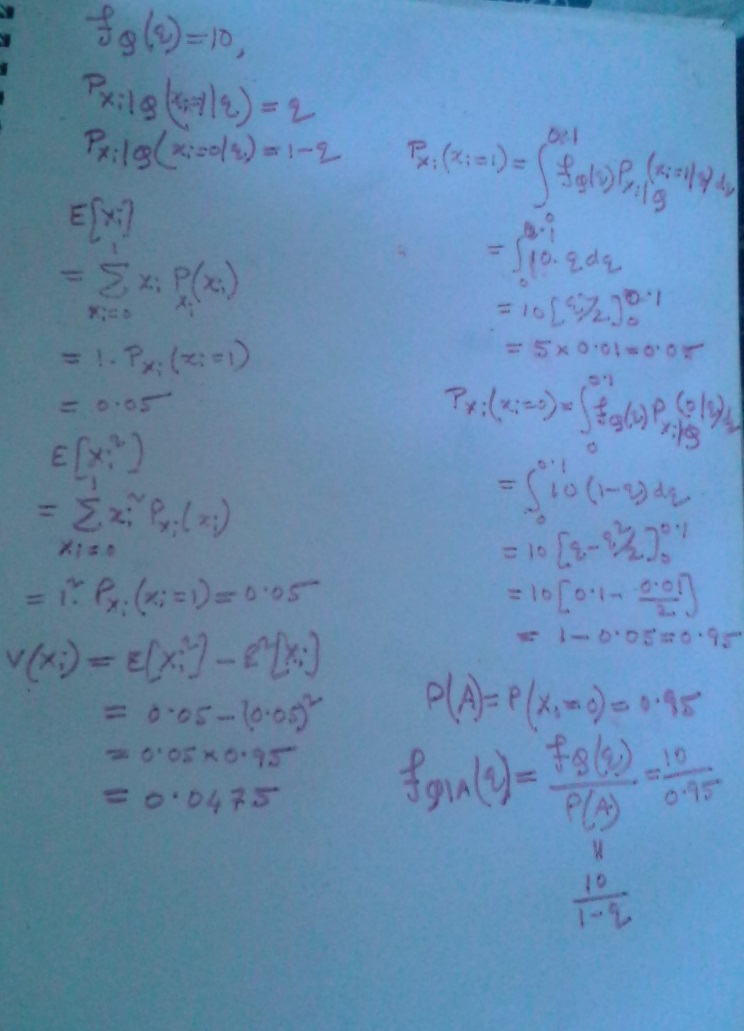 f_Q(q)=10,
P_{Xi|Q}(xi=1|q) = q
P_{Xi|Q}(xi=0|q) = 1-q
E[Xi]
= \sum_{xi=0}^{1} xi P_{Xi}(xi)
= 1. P_{Xi}(xi=1)
= 0.05
E[Xi²]
= \sum_{xi=0}^{1} xi² P_{Xi}(xi)
= 1². P_{Xi}(xi=1) = 0.05
V(Xi) = E[Xi²] - E²[Xi]
= 0.05 - (0.05)²
= 0.05 x 0.95
= 0.0475
P_{Xi}(xi=1) = \int_0^{0.1} f_Q(q) P_{Xi|Q}(xi=1|q) dq
= \int_0^{0.1} 10. q dq
= 10 [q²/2]_0^{0.1}
= 5 x 0.01 = 0.05
P_{Xi}(xi=0) = \int_0^{0.1} f_Q(q) P_{Xi|Q}(0|q) dq
= \int_0^{0.1} 10 (1-q) dq
= 10 [q - q²/2]_0^{0.1}
= 10 [0.1 - 0.01/2]
= 1 - 0.05 = 0.95
P(A) = P(Xi=0) = 0.95
f_{Q|A}(q) = f_Q(q)/P(A) = 10/0.95
=
10/(1-q)